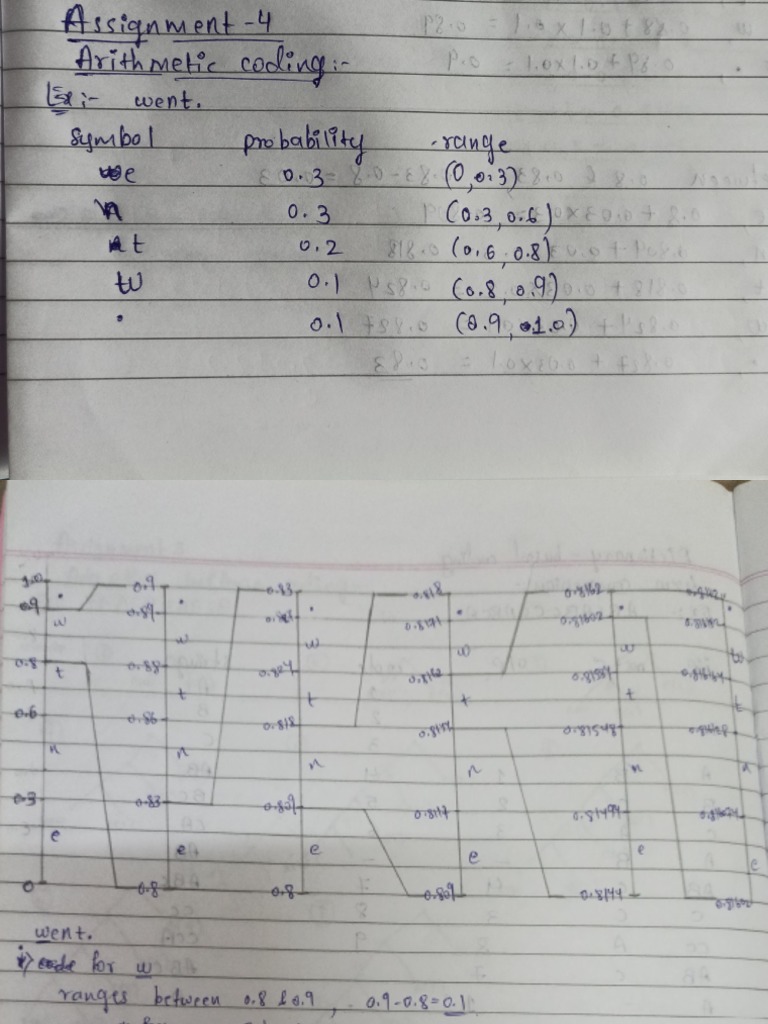 Assignment-4
Arithmetic coding:-
Ex:- went.
symbol probability range
e 0.3 (0, 0.3)
n 0.3 (0.3, 0.6)
t 0.2 (0.6, 0.8)
w 0.1 (0.8, 0.9)
. 0.1 (0.9, 1.0)
1.0 0.9 0.83 0.818 0.8162 0.8162
. . . . . .
0.9 0.89 0.8171 0.81602
w w w w w w
0.8 0.88 0.824 0.8162 0.81584
t t t t t t
0.6 0.86 0.818 0.81548
n n n n n n
0.3 0.83 0.809 0.8117 0.81494
e e e e e e
0 0.8 0.8 0.809 0.8144
went.
i) code for w
ranges between 0.8 & 0.9, 0.9-0.8=0.1